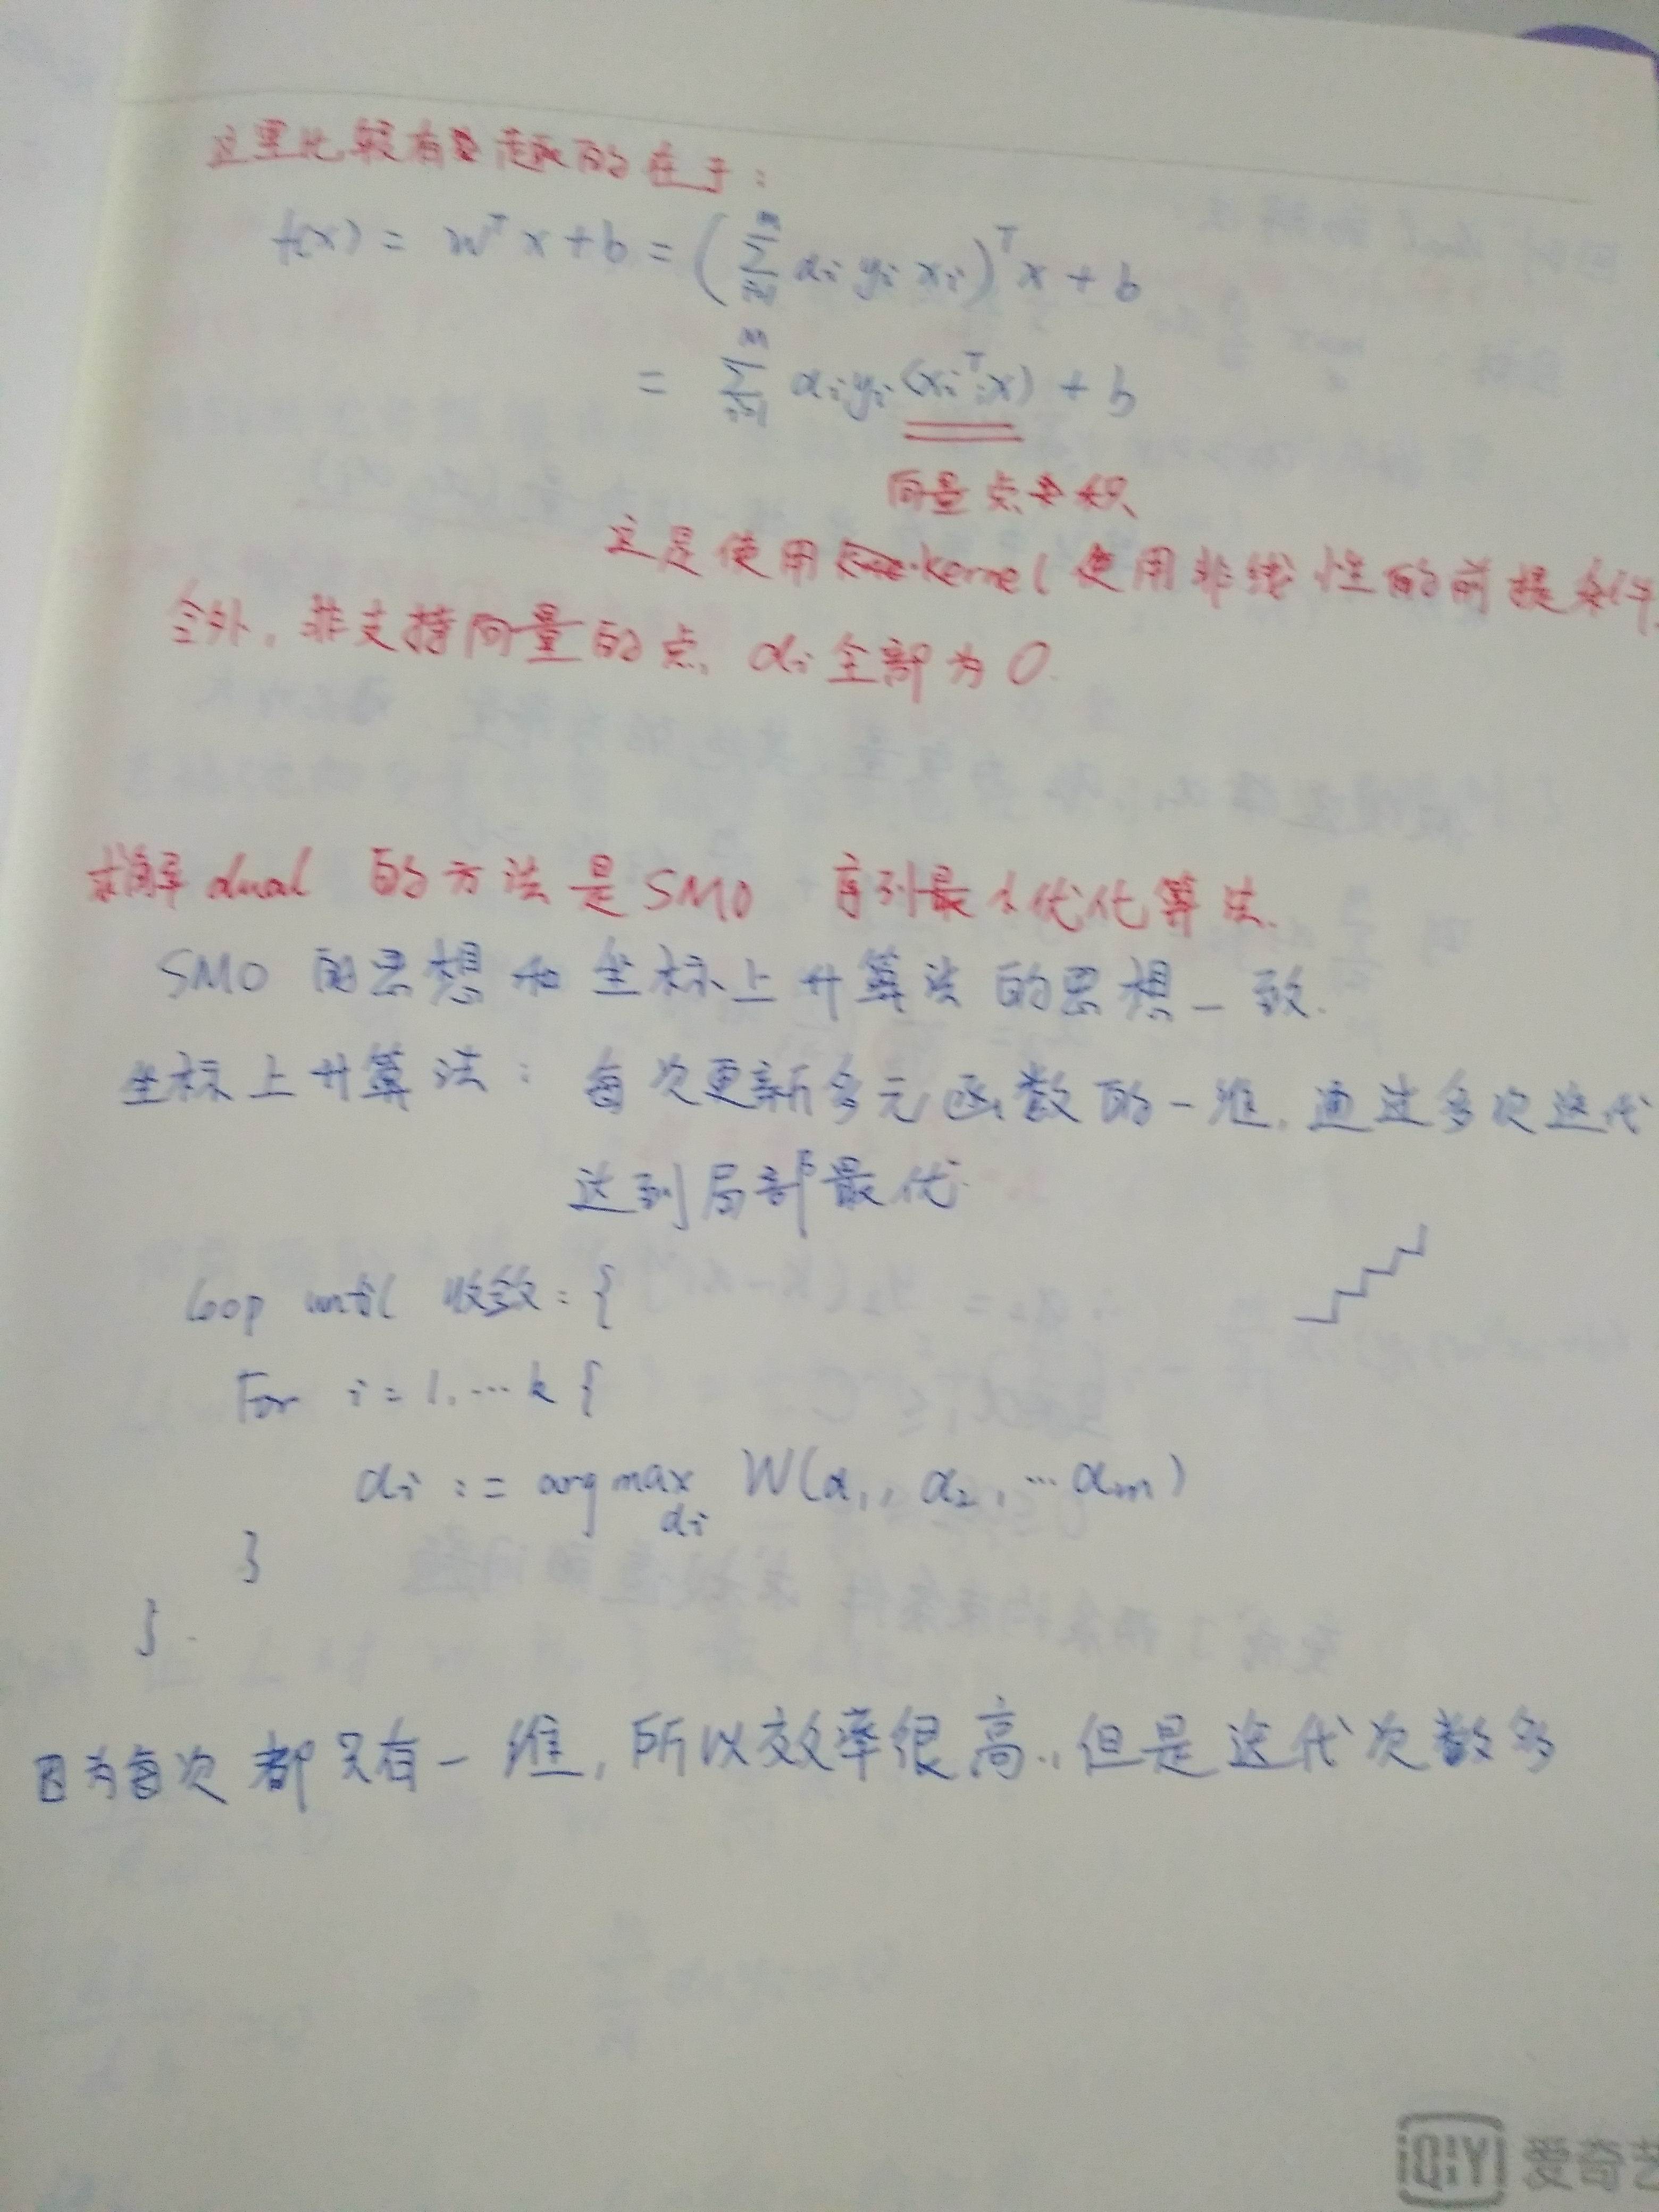 这里比较有趣的在于：
f(x) = wᵀx + b = (∑ᵢ₌₁ᵐ αᵢ yᵢ xᵢ)ᵀ x + b
= ∑ᵢ₌₁ᵐ αᵢ yᵢ (xᵢᵀ·x) + b
向量点积
这是使用 kernel 使用非线性的前提条件.
另外，非支持向量的点，αᵢ全部为0.
求解 dual 的方法是SMO 序列最小优化算法.
SMO 的思想和坐标上升算法的思想一致.
坐标上升算法：每次更新多元函数的一维，通过多次迭代
达到局部最优.
loop until 收敛：{
For i = 1, ⋯ k {
αᵢ := arg max_αᵢ W(α₁, α₂, ⋯ αₘ)
}
}.
因为每次都只有一维，所以效率很高，但是迭代次数多
iQIYI 爱奇艺